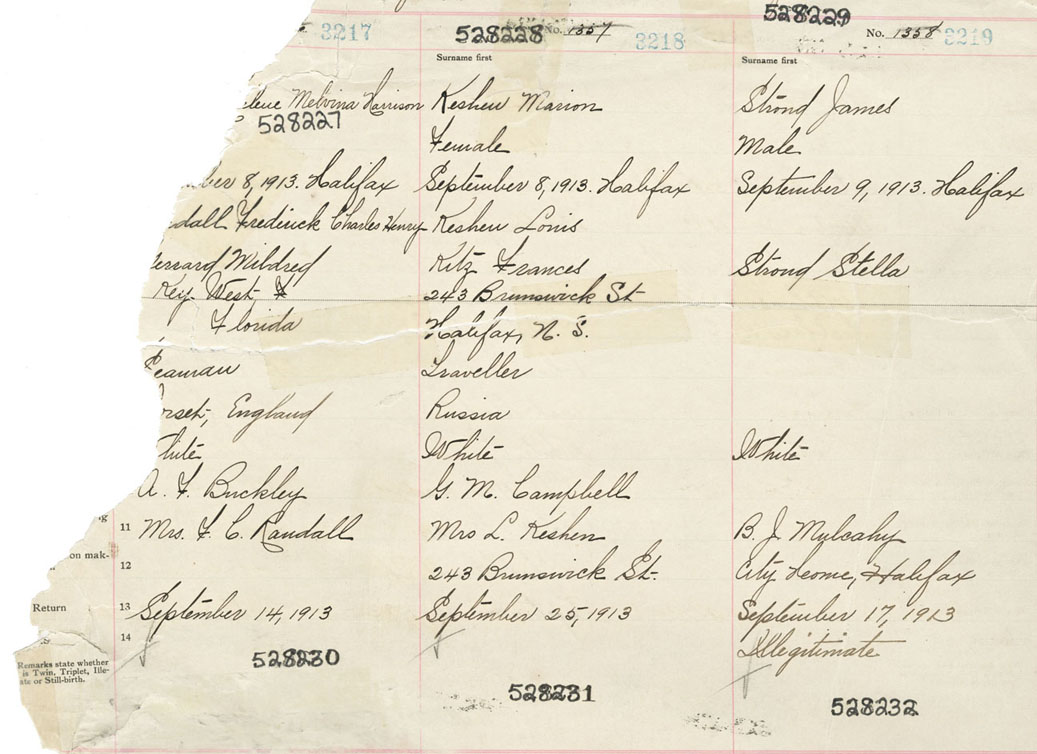 528229
3217
528228 No. 1357 3218
No. 1358 3219
Surname first
Surname first
Melvina Harrison Keshen Marion Stroud James
528227
Female Male
8, 1913. Halifax September 8, 1913. Halifax September 9, 1913. Halifax
Frederick Charles Henry Keshen Louis
Mildred Kitz Frances Stroud Stella
Key West, F 243 Brunswick St
Florida Halifax, N. S.
Seaman Traveller
England Russia
White White
A. F. Buckley G. M. Campbell
11 Mrs. F. C. Randall Mrs L. Keshen B. J. Mulcahy
on mak-
12 243 Brunswick St. City Home, Halifax
Return 13 September 14, 1913 September 25, 1913 September 17, 1913
14 Illegitimate
Remarks state whether
is Twin, Triplet, Ille-
or Still-birth.
528230
528231
528232